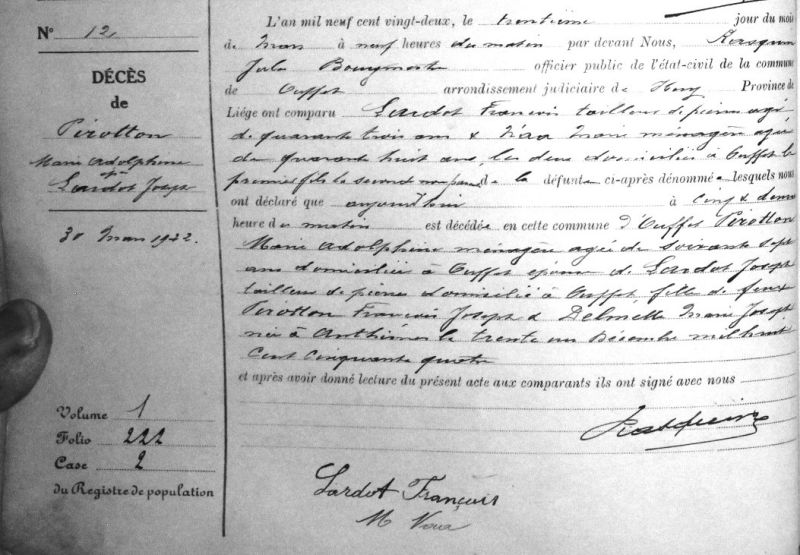 N° 12
DÉCÈS
de
Pirotton
Marie Adolphine
épse
Lardot Joseph
30 Mars 1922.
Volume 1
Folio 222
Case 2
du Registre de population
L'an mil neuf cent vingt-deux, le trentième jour du mois
de Mars à neuf heures du matin par devant Nous,
Jules Bourgmestre officier public de l'état-civil de la commune
de Ouffet arrondissement judiciaire de Huy Province de
Liége ont comparu Lardot François tailleur de pierres agé
de quarante trois ans & Marie ménagère agée
de quarante huit ans, les deux domiciliés à Ouffet le
premier fils le second non parent de la défunte ci-après dénommée lesquels nous
ont déclaré que aujourd'hui à cinq & demie
heure du matin est décédée en cette commune d'Ouffet Pirotton
Marie Adolphine ménagère agée de soixante sept
ans domiciliée à Ouffet épouse de Lardot Joseph
tailleur de pierres domicilié à Ouffet, fille de feux
Pirotton François Joseph & Delmelle Marie Joseph
née à Anthisnes le trente un Décembre mil huit
cent cinquante quatre
et après avoir donné lecture du présent acte aux comparants ils ont signé avec nous
Lardot François
M